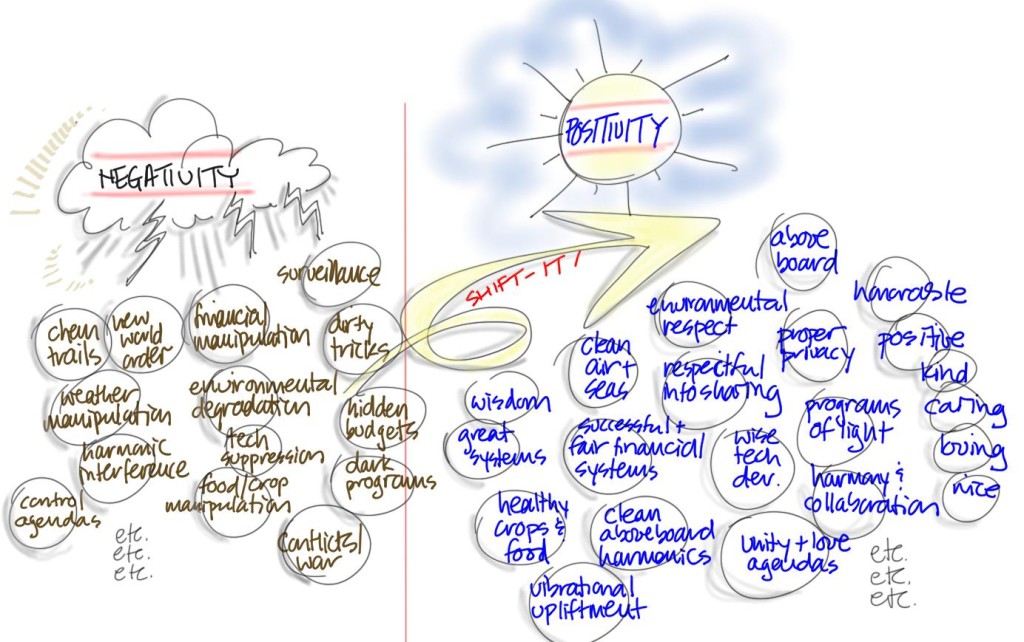 NEGATIVITY
surveillance
chem
trails
new
world
order
financial
manipulation
dirty
tricks
weather
manipulation
environmental
degradation
hidden
budgets
harmonic
interference
tech
suppression
dark
programs
control
agendas
food/crop
manipulation
conflicts/
war
etc.
etc.
etc.
SHIFT-IT!
POSITIVITY
above
board
honorable
environmental
respect
proper
privacy
positive
clean
air +
seas
respectful
info sharing
kind
wisdom
programs
of light
caring
great
systems
successful +
fair financial
systems
wise
tech
dev.
loving
harmony &
collaboration
nice
healthy
crops &
food
clean
aboveboard
harmonics
unity + love
agendas
vibrational
upliftment
etc.
etc.
etc.